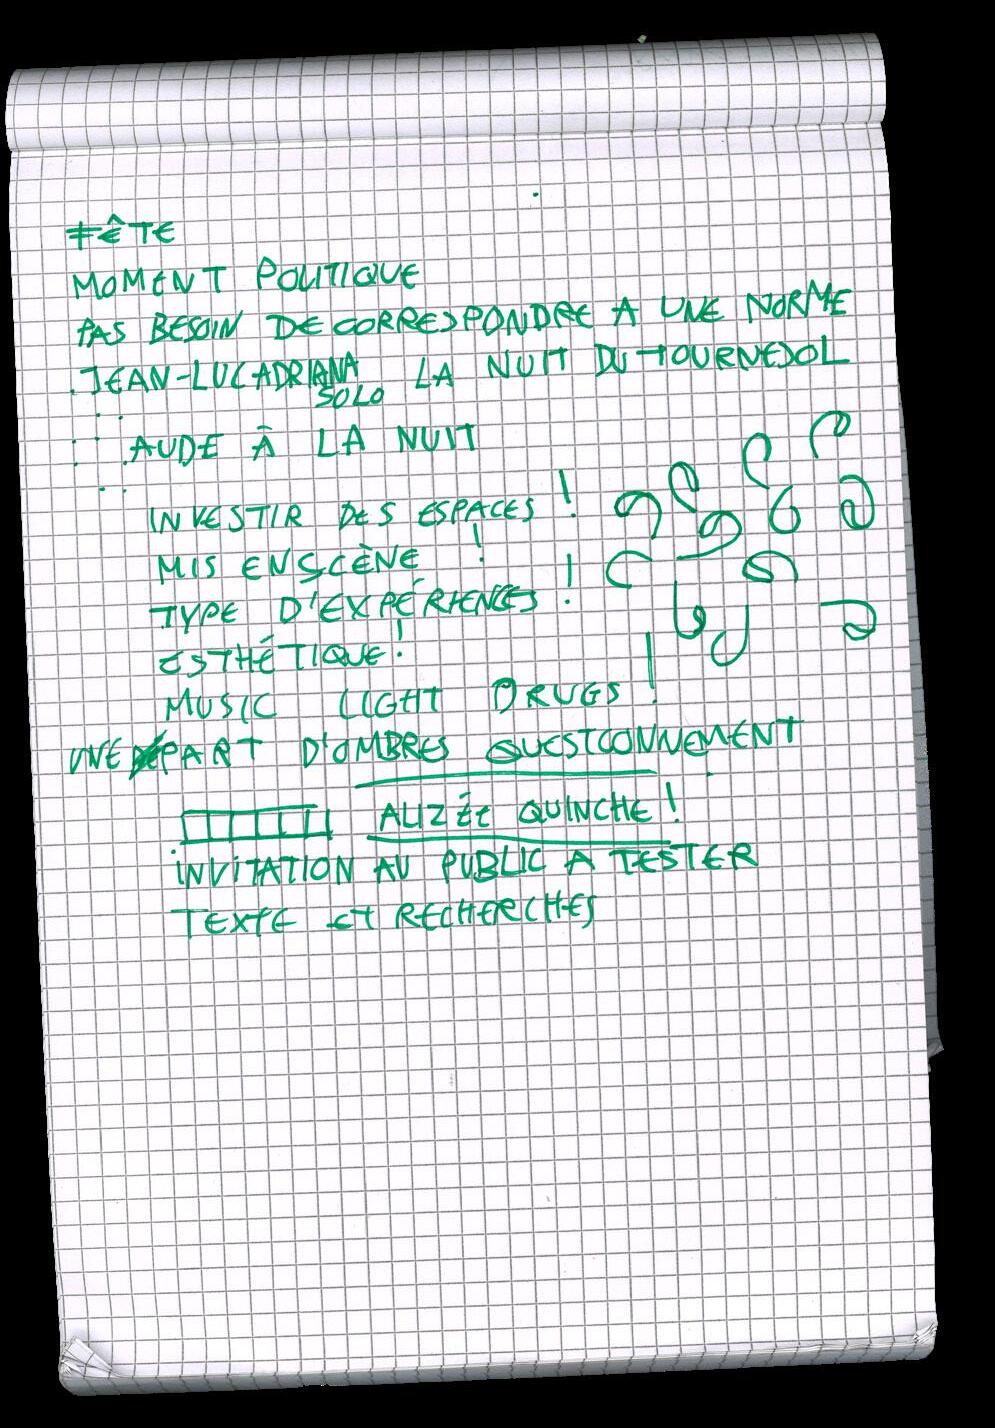 FÊTE
MOMENT POLITIQUE
PAS BESOIN DE CORRESPONDRE A UNE NORME
JEAN-LUC ADRIANA LA NUIT DU TOURNESOL
SOLO
AUDE À LA NUIT
INVESTIR DES ESPACES !
MIS EN SCÈNE !
TYPE D'EXPÉRIENCES !
ESTHÉTIQUE !
MUSIC LIGHT DRUGS !
UNE PART D'OMBRES QUESTIONNEMENT
ALIZÉE QUINCHE !
INVITATION AU PUBLIC A TESTER
TEXTE ET RECHERCHES